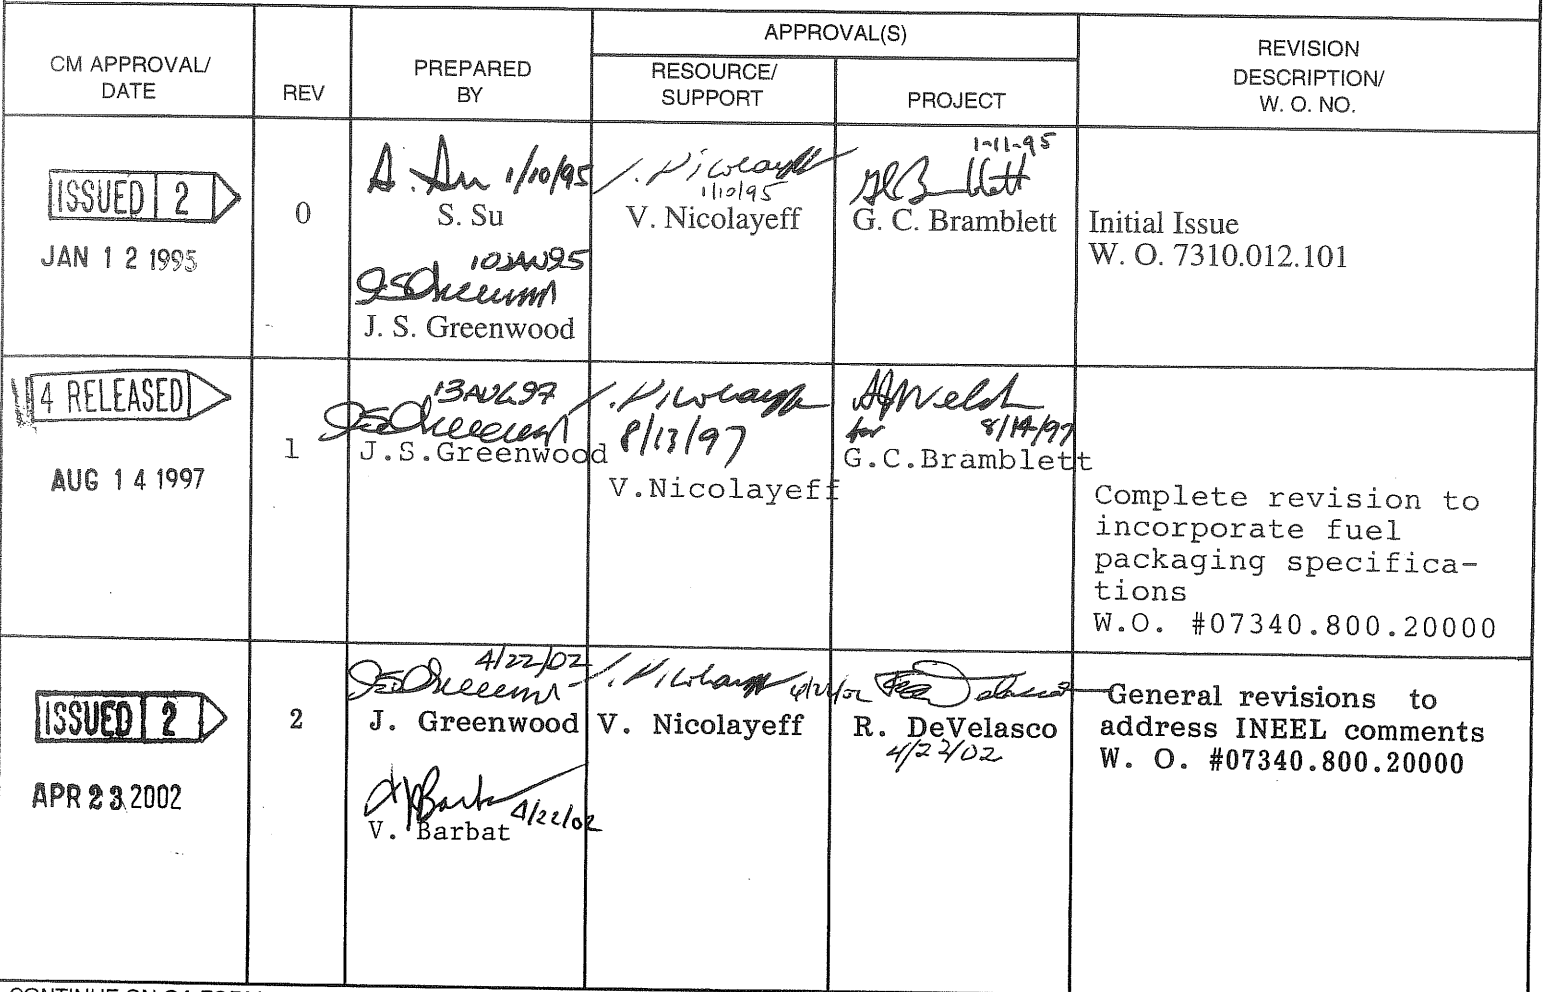 CM APPROVAL/
DATE
REV
PREPARED
BY
APPROVAL(S)
RESOURCE/
SUPPORT
PROJECT
REVISION
DESCRIPTION/
W. O. NO.
ISSUED 2
JAN 12 1995
0
1/10/95
S. Su
10JAN95
J. S. Greenwood
1/10/95
V. Nicolayeff
1-11-95
G. C. Bramblett
Initial Issue
W. O. 7310.012.101
4 RELEASED
AUG 14 1997
1
13AUG97
J.S.Greenwood
8/13/97
V.Nicolayeff
Welch
for 8/14/97
G.C.Bramblett
Complete revision to
incorporate fuel
packaging specifica-
tions
W.O. #07340.800.20000
ISSUED 2
APR 23 2002
2
4/22/02
J. Greenwood
Barbat 4/22/02
V. Barbat
4/22/02
V. Nicolayeff
R. DeVelasco
4/22/02
General revisions to
address INEEL comments
W. O. #07340.800.20000